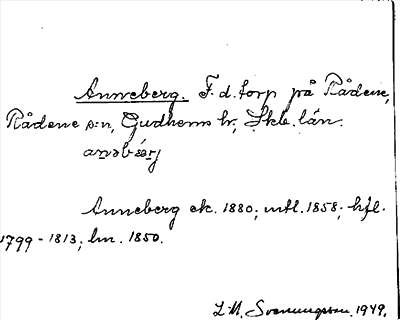 Anneberg. F. d. torp på Rådene,
Rådene s:n, Gudhems hr, Skb. län.
anəbærj
Anneberg ek. 1880; mtl. 1858; hfl.
1799-1813; lm. 1850.
L-M. Svenungsson. 1949.